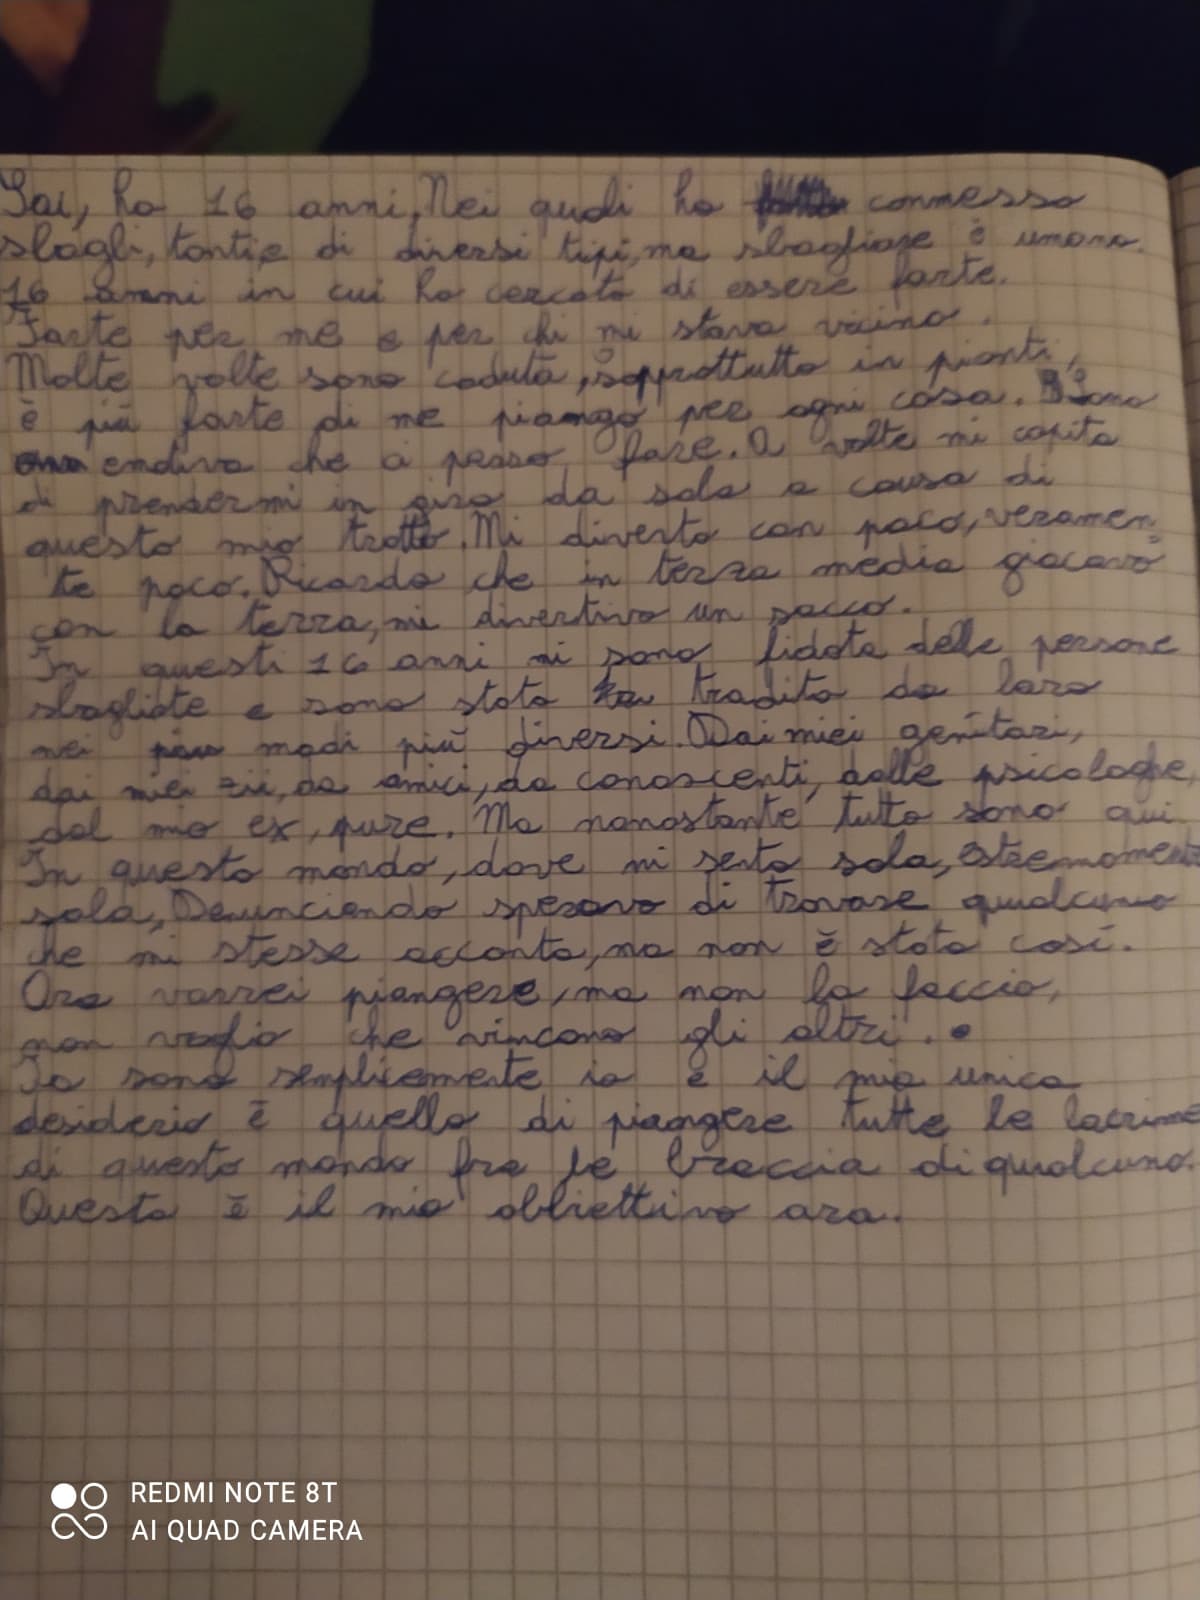 Sai, ho 16 anni. Nei quali ho commesso
sbagli, tanti e di diversi tipi, ma sbagliare è umano.
16 anni in cui ho cercato di essere forte.
Forte per me e per chi mi stava vicino.
Molte volte sono caduta, soprattutto in pianti,
è più forte di me piango per ogni cosa. Sono
emotiva che ci posso fare. A volte mi capita
di prendermi in giro da sola a causa di
questo mio tratto. Mi diverto con poco, veramen
te poco. Ricordo che in terza media giocavo
con la terra, mi divertivo un sacco.
In questi 16 anni mi sono fidata delle persone
sbagliate e sono stata tradita da loro
nei modi più diversi. Dai miei genitori,
dai miei zii, da amici, da conoscenti, dalle psicologhe,
dal mio ex, pure. Ma nonostante tutto sono qui
In questo mondo, dove mi sento sola, estremamente
sola, Denunciando speravo di trovare qualcuno
che mi stesse accanto, ma non è stato così.
Ora vorrei piangere, ma non lo faccio,
non voglio che vincano gli altri.
Io sono semplicemente io e il mio unico
desiderio è quello di piangere tutte le lacrime
di questo mondo fra le braccia di qualcuno.
Questo è il mio obbiettivo ora.
REDMI NOTE 8T
AI QUAD CAMERA